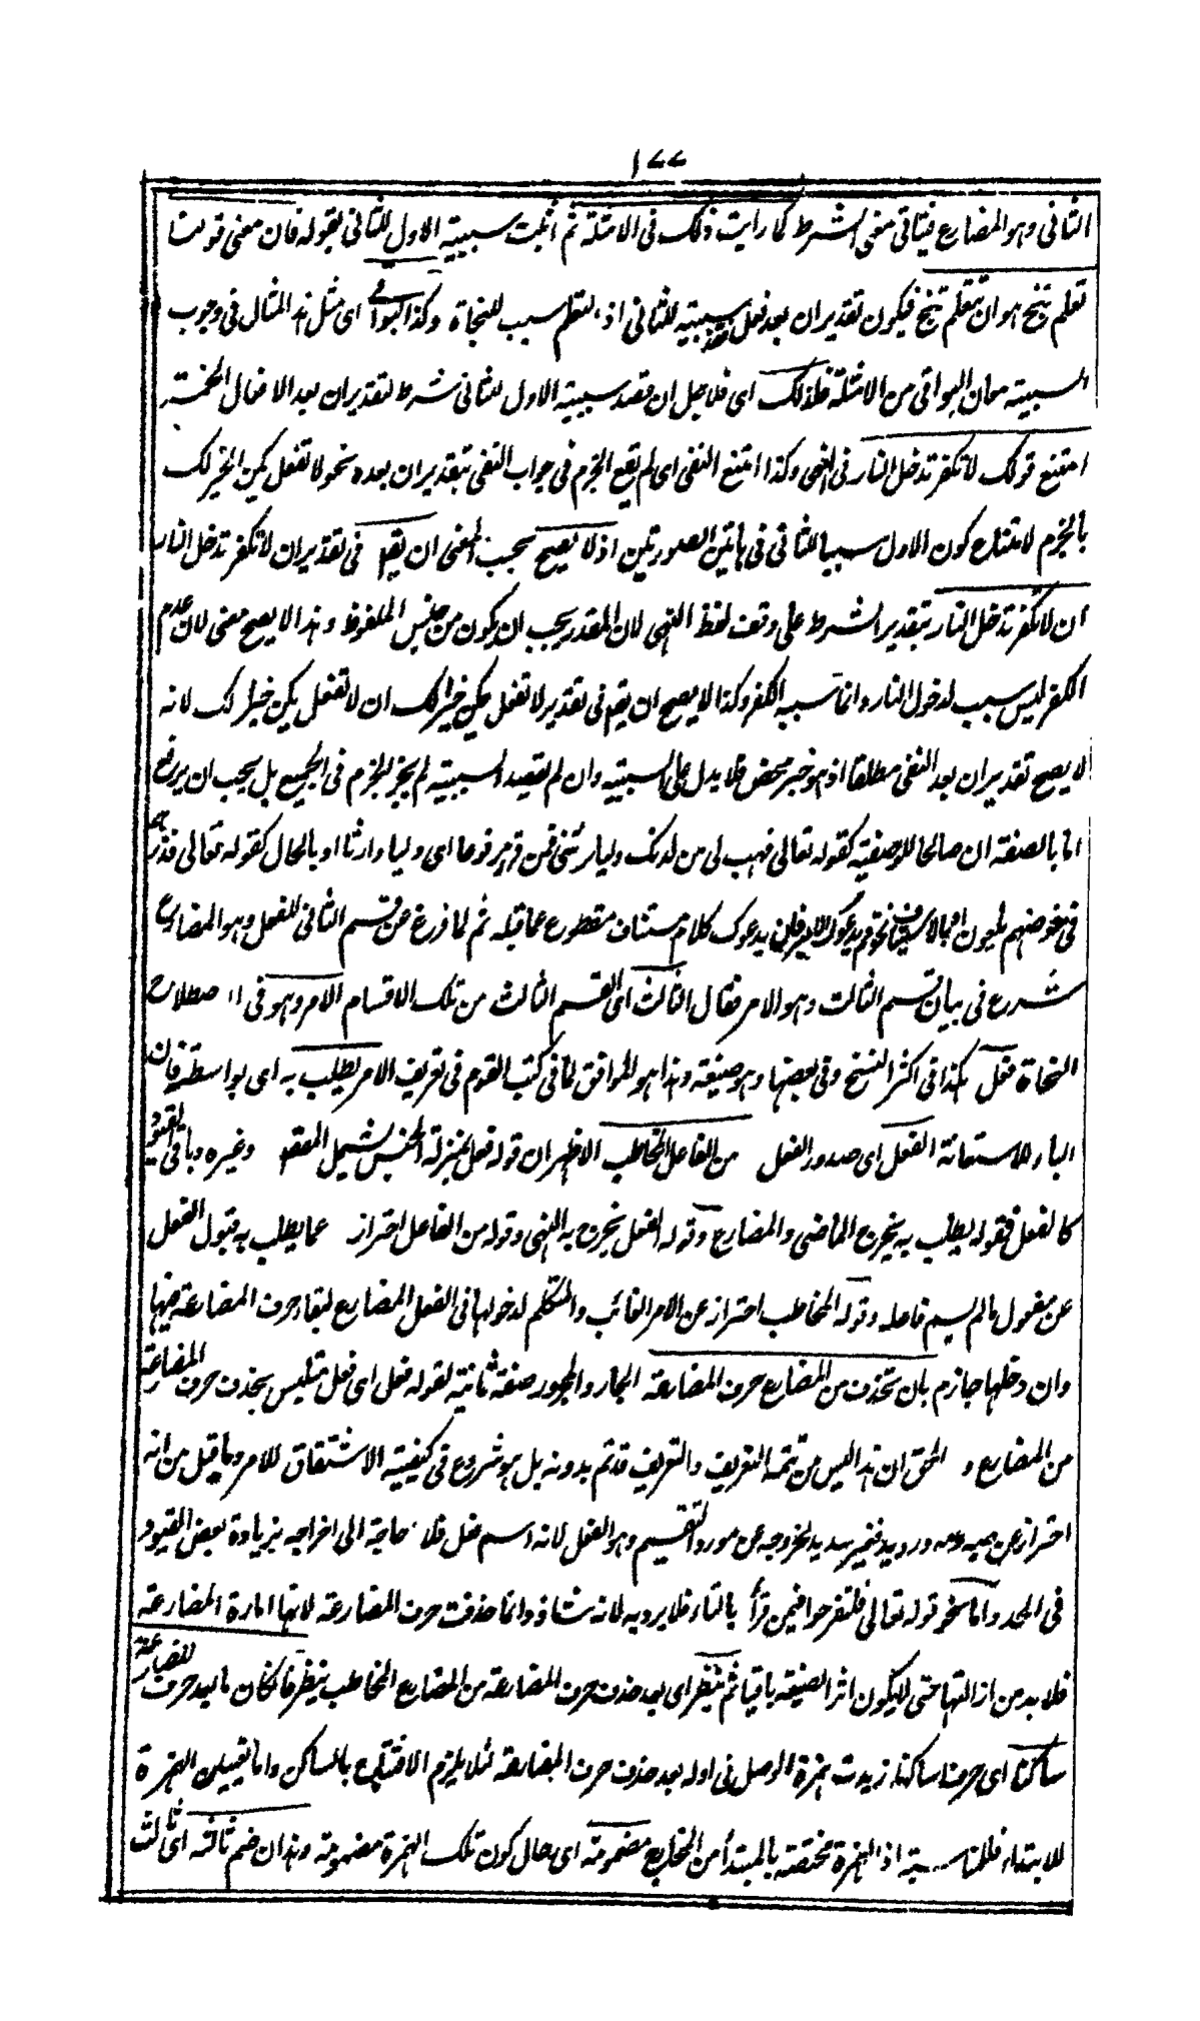 ١٧٧
الثانی وهو المضارع فیتاتی معنی الشرط کما رایت ذلک فی الامثلة ثم اثبت سببیة الاول للثانی بقوله فان معنی قولنا
تعلم تنج هو ان تتعلم تنج فیکون تقدیر ان بعد فعل قصد سببیته للثانی اذ التعلم سبب للنجاة وکذا البواقی ای مثل هذا المثال فی وجوب
السببیة معان البواقی من الامثلة فلذلک ای فلاجل ان قصد سببیة الاول للثانی شرط لتقدیر ان بعد الافعال الخمسة
امتنع قولک لا تکفر تدخل النار فی النهی وکذا امتنع النفی ای لم یقع الجزم فی جواب النفی بتقدیر ان بعده نحو لا تفعل یکن الخیر لک
بالجزم لامتناع کون الاول سببا للثانی فی هاتین الصورتین اذ لا یصح بحسب المعنی ان یقم فی تقدیر ان لا تکفر تدخل النار
ان لا تکفر تدخل النار بتقدیر الشرط علی وفق لفظ النهی لان المقدر یجب ان یکون من جنس الملفوظ وهذا لا یصح معنی لان عدم
الکفر لیس سبب لدخول النار وانما سببه الکفر وکذا لا یصح ان یقم فی تقدیر لا تفعل یکن خیرا لک ان لا تفعل یکن خیرا لک لانه
لا یصح تقدیر ان بعد النفی مطلقا اذ هو خبر محض فلا یدل علی السببیة وان لم یقصد السببیة لم یجز الجزم فی الجمیع بل یجب ان یرفع
اما بالصفة ان صالحا للوصفیة کقوله تعالی فهب لی من لدنک ولیا یرثنی فمن قرا مرفوعا ای ولیا وارثا او بالحال کقوله تعالی فذرهم
فی خوضهم یلعبون او بالاستیناف نحو قم یدعوک الامیر فان یدعوک کلام مستناف مقطوع عما قبله ثم لما فرغ عن قسم الثانی للفعل وهو المضارع
شرع فی بیان قسم الثالث وهو الامر فقال الثالث ای القسم الثالث من تلک الاقسام الامر وهو فی اصطلاح
النحاة فعل هکذا فی اکثر النسخ وفی بعضها وهو صیغة وهذا هو الموافق لما فی کتب القوم فی تعریف الامر یطلب به ای بواسطته فان
الباء للاستعانة الفعل ای صدور الفعل من الفاعل المخاطب الاظهر ان قوله فعل بمنزلة الجنس یشمل المقصود وغیره وباقی القیود
کالفصل فقوله یطلب به یخرج الماضی والمضارع وقوله الفعل یخرج به النهی وقوله من الفاعل احتراز عما یطلب به قبول الفعل
عن مفعول ما لم یسم فاعله وقوله المخاطب احتراز عن الامر الغائب والمتکلم لدخولها فی الفعل المضارع لبقاء حرف المضارعة فیها
وان دخلها جازم بان تحذف من المضارع حرف المضارعة الجار والمجرور صفة ثانیة لقوله فعل ای فعل متلبس بحذف حرف المضارعة
من المضارع و الحق ان هذا لیس من تتمة التعریف والتعریف قد تم بدونه بل هو شروع فی کیفیة الاشتقاق للامر وما قیل من انه
احتراز عن صه ومه ورويد فغیر سدید لخروجه عن مورد التقسیم وهو الفعل لانه اسم فعل فلا حاجة الی اخراجه بزیادة بعض القیود
فی الحد واما نحو قوله تعالی فلتفرحوا فیمن قرأ بالتاء فلا یرد به لانه شاذ وانما حذفت حرف المضارعة لانها امارة المضارعة
فلا بد من ازالتها حتی لا یکون اثر الصیغة باقیا ثم تنظر ای بعد حذف حرف المضارعة من المضارع المخاطب ینظر فان کان ما بعد حرف المضارعة
ساکنا ای حرفا ساکنا زیدت همزة الوصل فی اوله بعد حذف حرف المضارعة لئلا یلزم الافتتاح بالساکن واما تعیین الهمزة
للابتداء فللمناسبة اذ الهمزة مختصة بالمبتدأ من المخارج مضمومة ای حال کون تلک الهمزة مضمومة وهذا ان ضم ثالثه ای ثالث